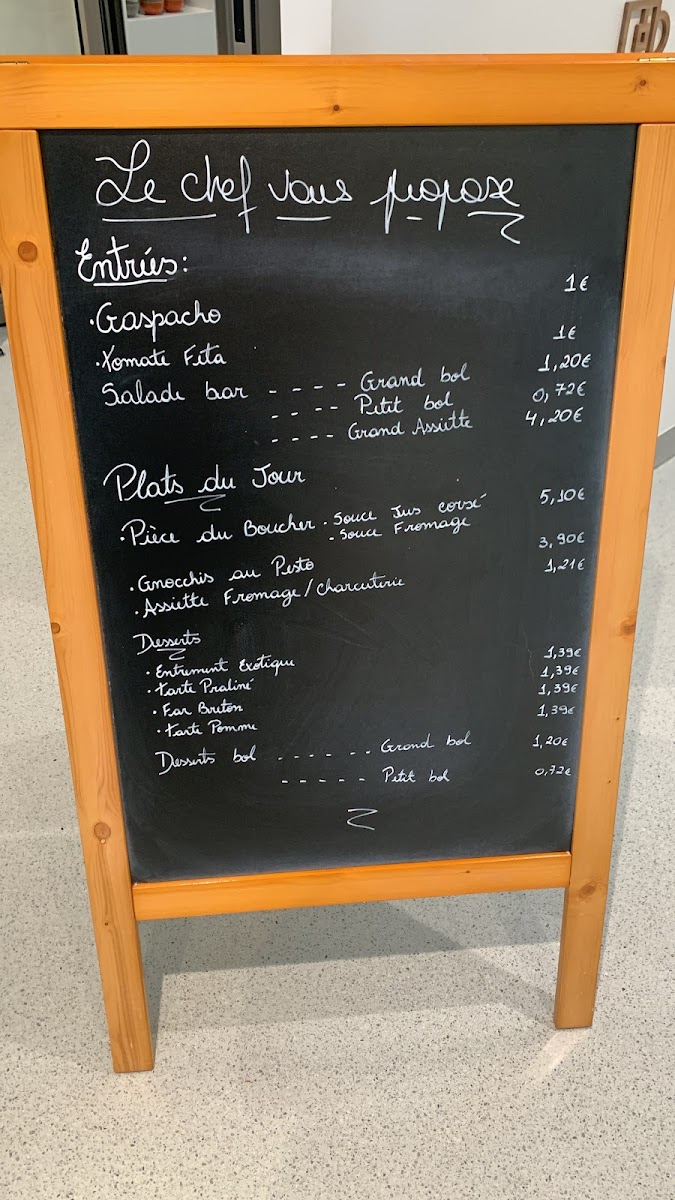 Le chef vous propose
Entrées:
·Gaspacho 1€
·Tomate Feta 1€
Salade bar - - - - Grand bol 1,20€
- - - - Petit bol 0,72€
- - - - Grand Assiette 4,20€
Plats du Jour
·Pièce du Boucher · Souce Jus corsé 5,10€
- Souce Fromage
·Gnocchis au Pesto 3,90€
·Assiette Fromage/charcuterie 1,21€
Desserts
·Entrement Exotique 1,39€
·Tarte Praliné 1,39€
·Far Breton 1,39€
·Tarte Pomme 1,39€
Desserts bol - - - - - - Grand bol 1,20€
- - - - - Petit bol 0,72€